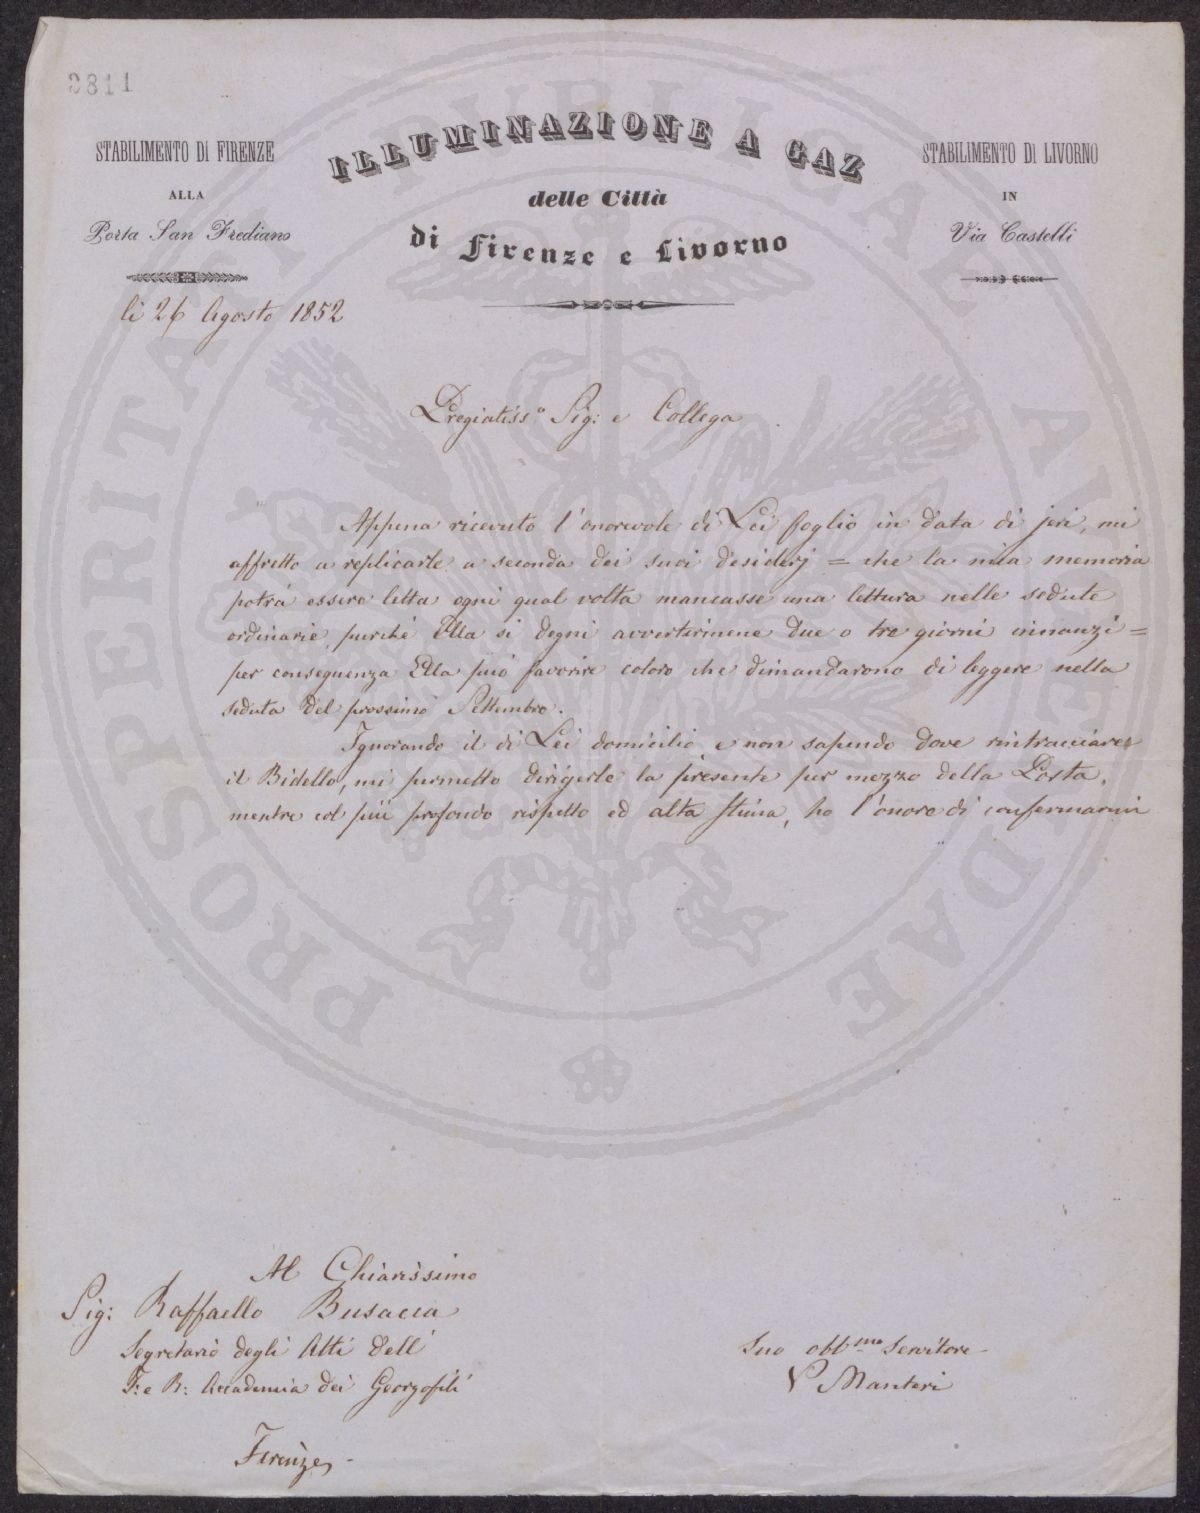 2811
STABILIMENTO DI FIRENZE
ALLA
Porta San Frediano
ILLUMINAZIONE A GAZ
delle Città
di Firenze e Livorno
STABILIMENTO DI LIVORNO
IN
Via Castelli
li 26 Agosto 1852
Pregiatiss.o Sig: e Collega
Appena ricevuto l'onorevole di Lei foglio in data di jeri, mi
affretto a replicarle a seconda dei suoi desiderj = che la mia memoria
potrà essere letta ogni qual volta mancasse una lettura nelle sedute
ordinarie, purchè Ella si degni avvertirmene due o tre giorni innanzi =
per conseguenza Ella può favorire coloro che dimandarono di leggere nella
seduta del prossimo Settembre.
Ignorando il di Lei domicilio e non sapendo dove rintracciare
il Bidello, mi permetto dirigerle la presente per mezzo della Posta,
mentre col più profondo rispetto ed alta stima, ho l'onore di confermarmi
Al Chiarissimo
Sig: Raffaello Busacca
Segretario degli Atti dell'
I: e R: Accademia dei Georgofili
Firenze
Suo obb.mo Servitore
P Manteri
PROSPERITATI PUBLICAE AUGENDAE